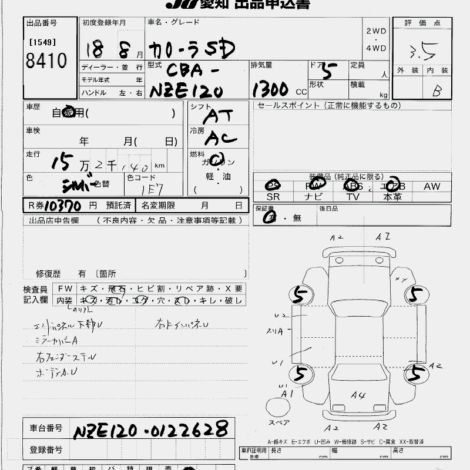 愛知 出品申込書
出品番号
[1549]
8410
初度登録年月
18年8月
車名・グレード
カローラ 5D
2WD
4WD
評価点
3.5
外装 内装
B
ディーラー・並行
モデル年式 年
ハンドル 左・右
型式
CBA-
NZE120
排気量
1300 CC
ドア
5
形状
定員
人
積載
kg
車歴
自 用( )
シフト
AT
セールスポイント(正常に機能するもの)
車検
年 月( 日)
冷房
AC
走行
15万2千,140km
燃料
ガソリン
軽油
( )
色
シルバー 色替
色コード
1E7
装備品(純正品に限る)
PS PW ABS エアB AW
SR ナビ TV 本革
R券 10370円 預託済
名変期限 月 日
保証書
有・無
後日品
出品店申告欄 (不良内容・欠品・注意事項等記載)
修復歴 有 [箇所
検査員記入欄
FW キズ・飛石・ヒビ割・リペア跡・X要
内装 キズ・汚れ・コゲ・穴・スレ・キレ・破し
エンドパネル下部U
右ドアインパネU
ミラーカバーA
ボディスU
A2 A2
5 5
U2
スリA
U1 U1
5 5
A1
A4
A2 A2
スペア
A-線キズ E-エクボ U-凹み W-補修跡 S-サビ C-腐食 XX-取替済
車台番号
NZE120-0122628
登録番号
車庫証明用
長さ cm 幅 cm 高さ cm